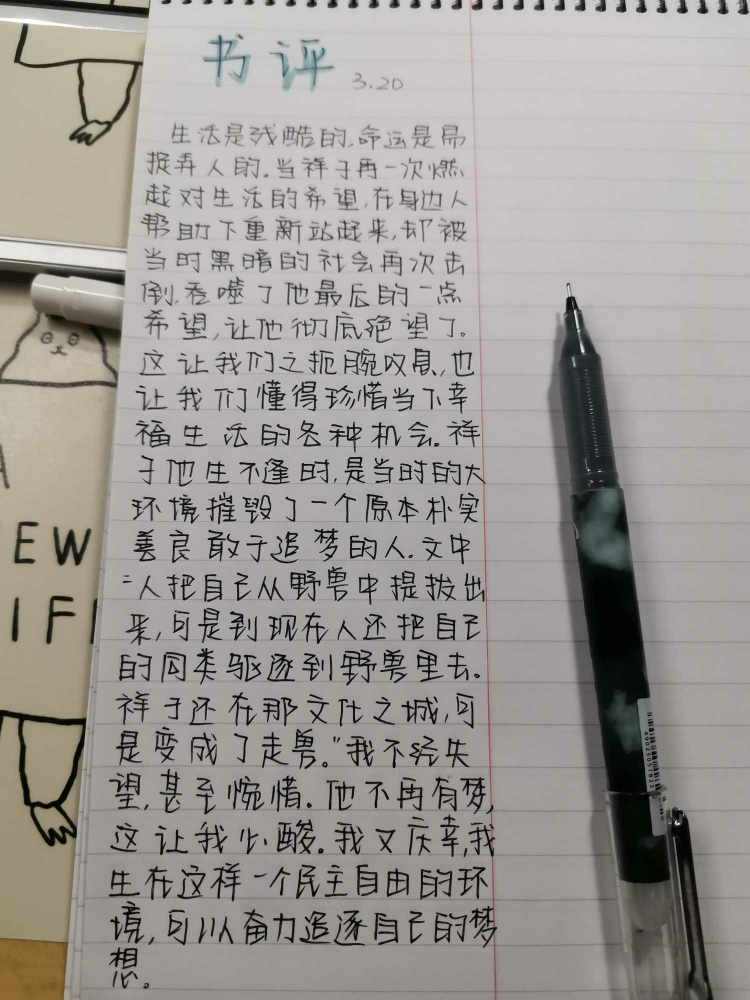 书评 3.20
生活是残酷的,命运是易
捉弄人的。当祥子再一次燃
起对生活的希望,在身边人
帮助下重新站起来,却被
当时黑暗的社会再次击
倒,吞噬了他最后的一点
希望,让他彻底绝望了。
这让我们之扼腕叹息,也
让我们懂得珍惜当下幸
福生活的各种机会。祥
子他生不逢时,是当时的大
环境摧毁了一个原本朴实
善良敢于追梦的人。文中
“人把自己从野兽中提拔出
来,可是到现在人还把自己
的同类驱逐到野兽里去。
祥子还在那文化之城,可
是变成了走兽。”我不经失
望,甚至惋惜。他不再有梦,
这让我心酸。我又庆幸,我
生在这样一个民主自由的环
境,可以奋力追逐自己的梦
想。
EW
IF